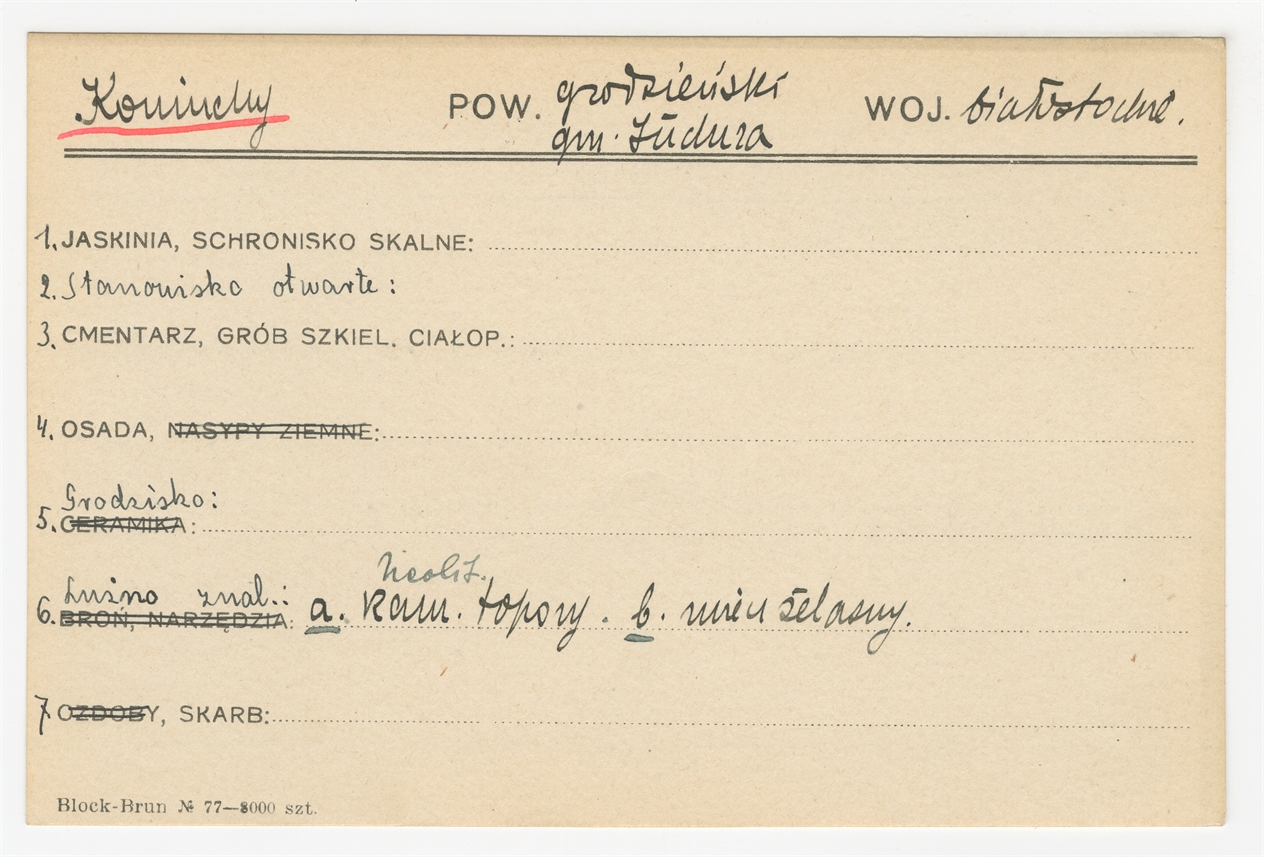 Koniuchy POW. grodzieński WOJ. białostockie.
gm. Indura
1. JASKINIA, SCHRONISKO SKALNE:
2. Stanowisko otwarte:
3. CMENTARZ, GRÓB SZKIEL. CIAŁOP.:
4. OSADA, NASYPY ZIEMNE:
Grodzisko:
5. CERAMIKA:
Neolit.
Luźno znal.: a. Kam. topory. b. miecz żelazny.
6. BROŃ, NARZĘDZIA:
7 OZDOBY, SKARB:
Block-Brun № 77—8000 szt.